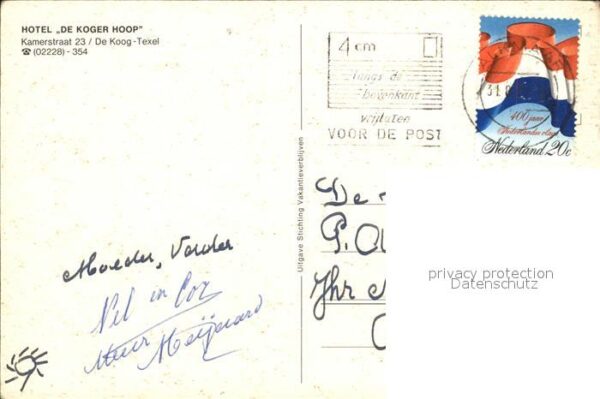 HOTEL „DE KOGER HOOP"
Kamerstraat 23 / De Koog-Texel
☎ (02228) - 354
4 cm
langs de
bovenkant
vrijlaten
VOOR DE POST
400 jaar
Nederlandse vlag
Nederland 20c
Uitgave Stichting Vakantieverblijven
De
P.
privacy protection
Datenschutz
Moeder, Vader
Nel en Cor
Meijerard